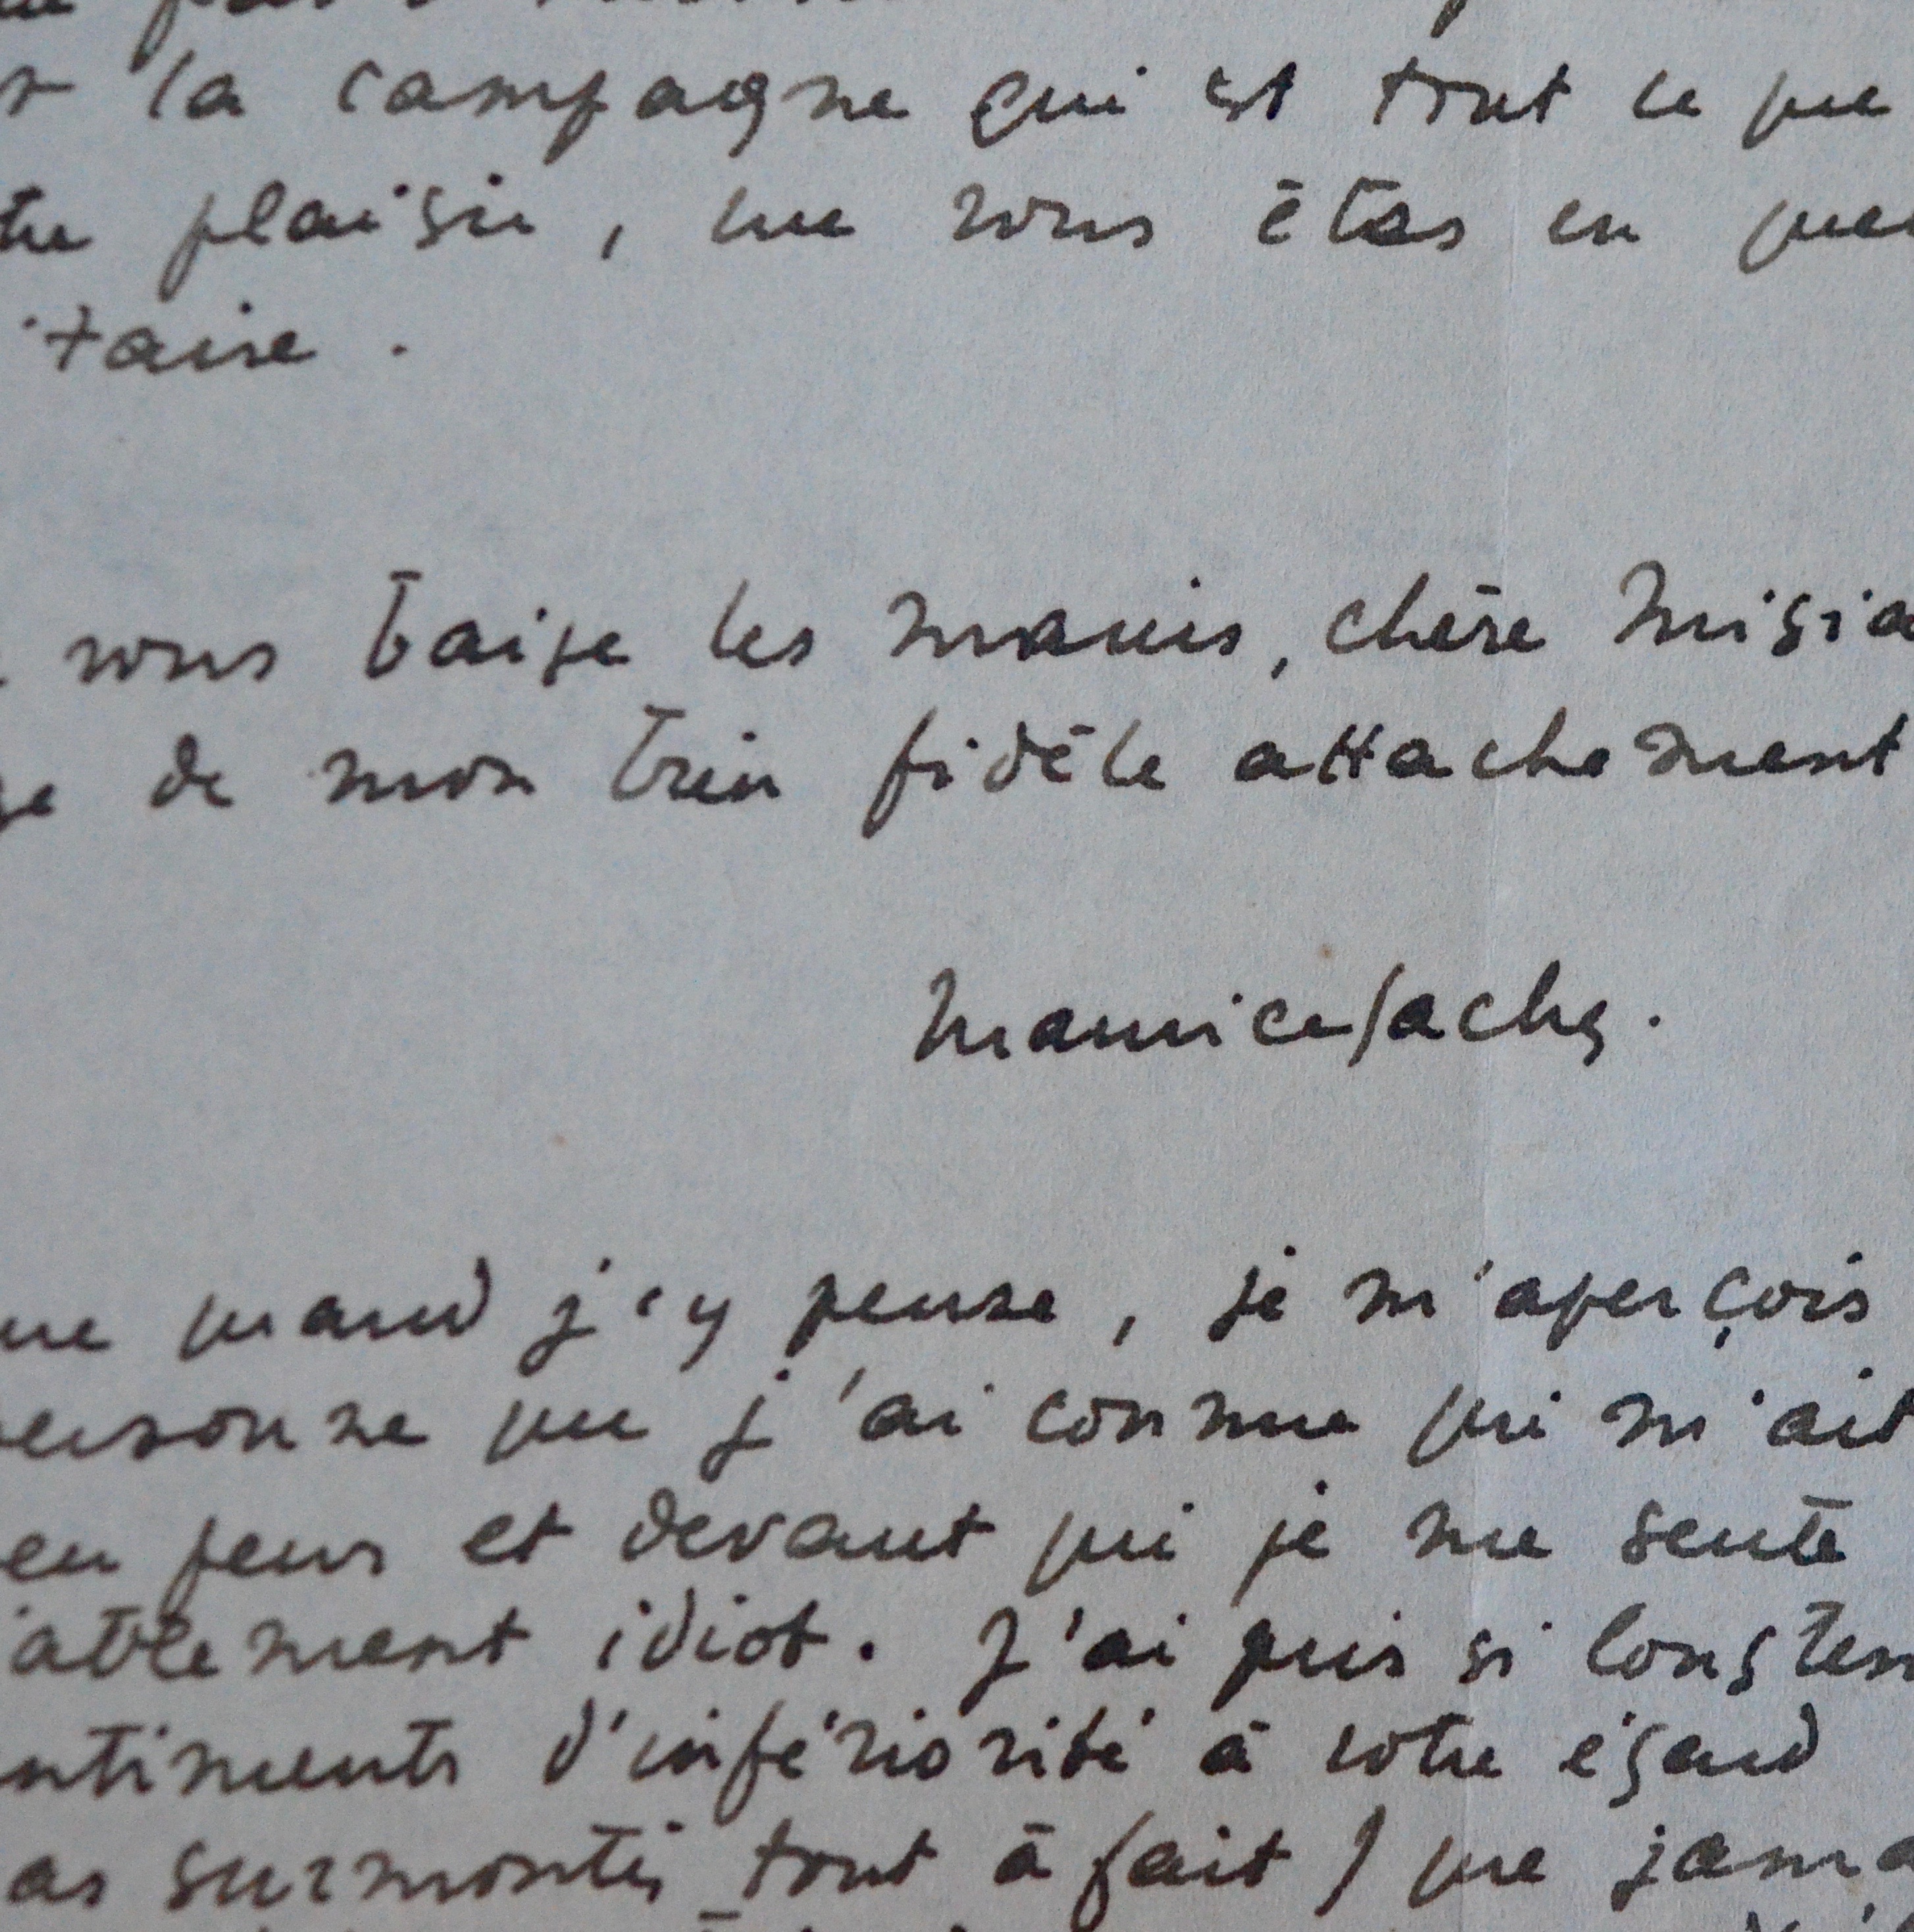 la campagne qui est tout ce que
plaisir, que vous êtes en
taire.
vous baise les mains, chère Misia
de mon bien fidèle attachement
Maurice Sachs.
quand j'y pense, je m'aperçois
personne que j'ai connue qui m'ait
peur et devant qui je me sente
idiot. J'ai puis si longtem
ntiments d'infériorité à votre égard
as surmontés tout à fait) que jama